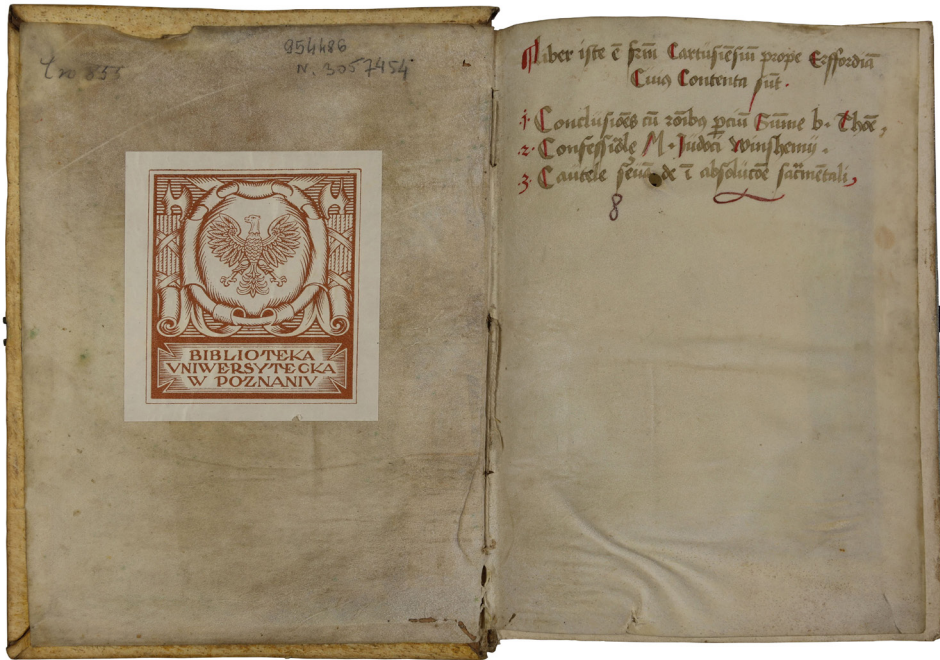 954486
N. 3057454
BIBLIOTEKA
VNIWERSYTECKA
W POZNANIV
Liber iste ē frm̄ Cartusiēsiū prope Erffordiā
Cuius Contenta sūt.
.1. Conclusiōes cū rōibꝰ ꝑciū Sūme b. Thōe,
.2. Confessiōle M. Iudoci Winshemij.
.3. Cautele de ī absolucōe sacr̄mētali,
8